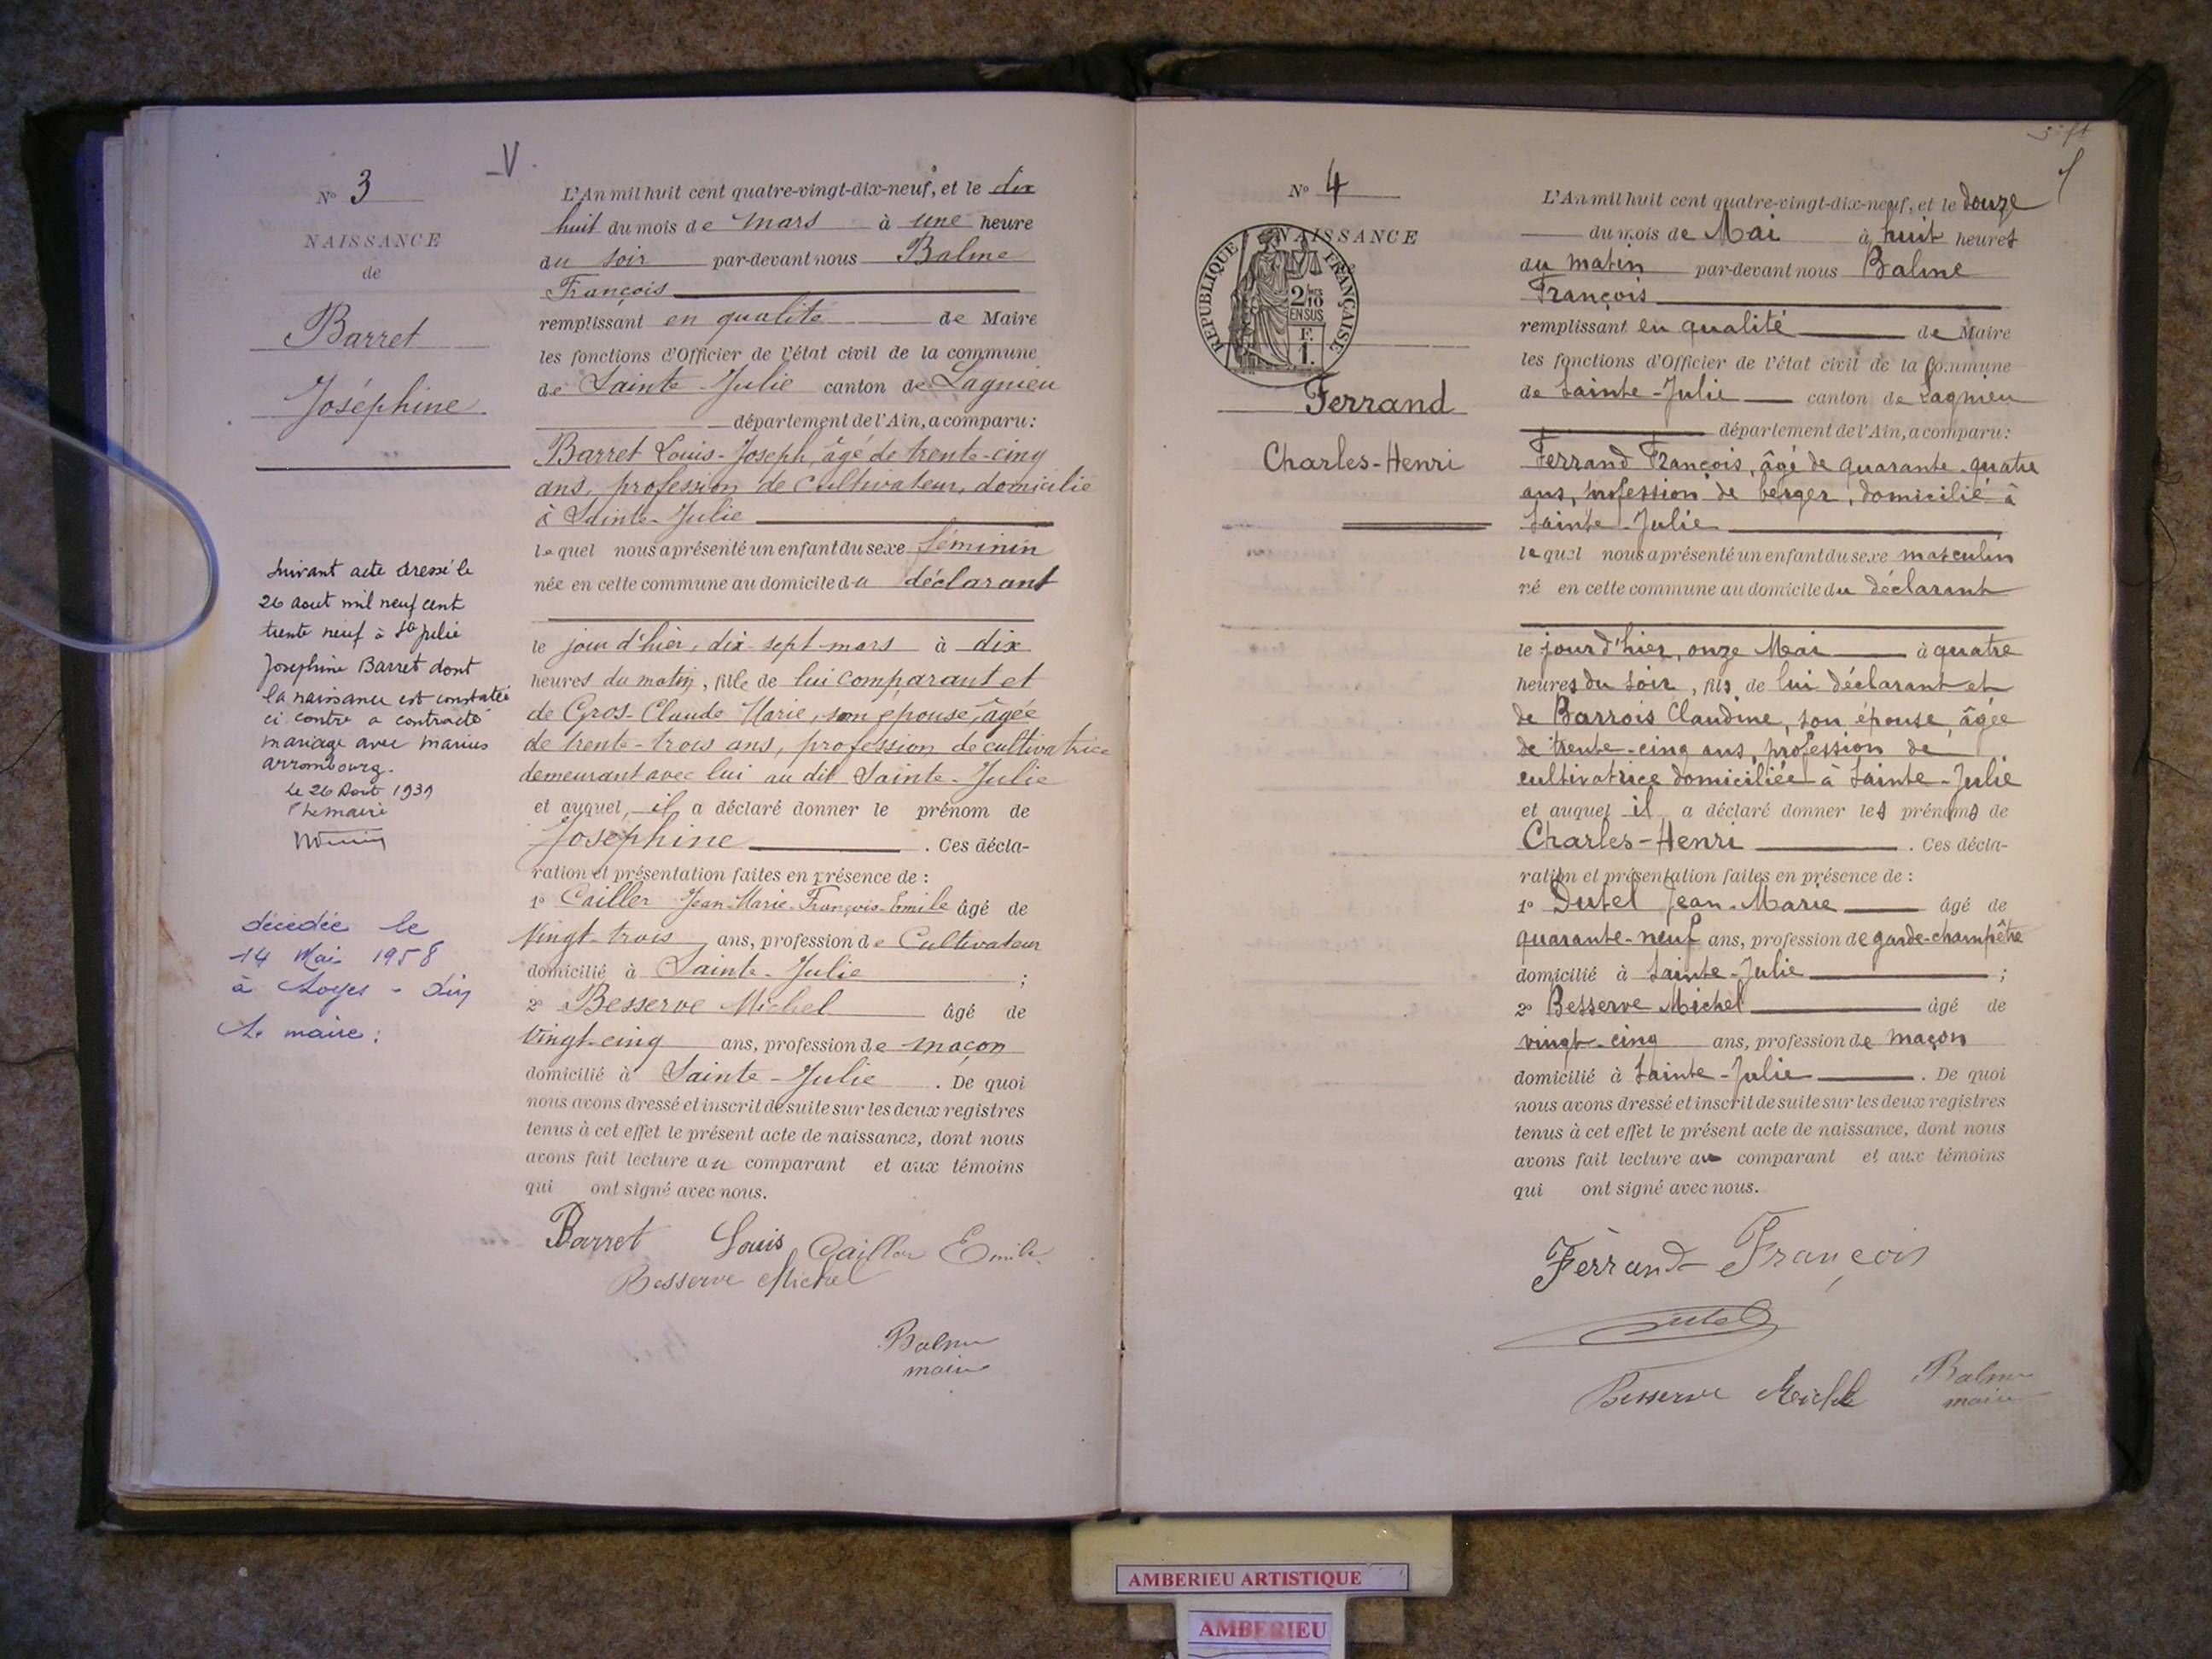 N° 3
NAISSANCE
de
Barret
Joséphine
Suivant acte dressé le
26 aout mil neuf cent
trente neuf à Ste Julie
Josephine Barret dont
la naissance est constatée
ci contre a contracté
mariage avec Marius
Arrombourg.
Le 26 Aout 1939
Le maire
décédée le
14 Mai 1958
à Loyes - Ain
Le maire :
V
L'An mil huit cent quatre-vingt-dix-neuf, et le dix
huit du mois de mars à une heure
du soir par-devant nous Balme
François
remplissant en qualité de Maire
les fonctions d'Officier de l'état civil de la commune
de Sainte Julie canton de Lagnieu
département de l'Ain, a comparu :
Barret Louis-Joseph, âgé de trente-cinq
ans, profession de cultivateur, domicilié
à Sainte-Julie
lequel nous a présenté un enfant du sexe féminin
née en cette commune au domicile du déclarant
le jour d'hier, dix-sept mars à dix
heures du matin, fille de lui comparant et
de Gros-Claude Marie, son épouse, âgée
de trente-trois ans, profession de cultivatrice
demeurant avec lui au dit Sainte-Julie
et auquel, il a déclaré donner le prénom de
Joséphine . Ces décla-
ration et présentation faites en présence de :
1° Cailler Jean-Marie-François-Emile âgé de
Vingt-trois ans, profession de Cultivateur
domicilié à Sainte-Julie ;
2° Besserve Michel âgé de
Vingt-cinq ans, profession de maçon
domicilié à Sainte-Julie . De quoi
nous avons dressé et inscrit de suite sur les deux registres
tenus à cet effet le présent acte de naissance, dont nous
avons fait lecture au comparant et aux témoins
qui ont signé avec nous.
Barret Louis Cailler Emile
Besserve Michel
Balme
maire
N° 4
NAISSANCE
REPUBLIQUE FRANÇAISE
2/10
EN SUS
F.
1.
Ferrand
Charles-Henri
L'An mil huit cent quatre-vingt-dix-neuf, et le douze
du mois de Mai à huit heures
du matin par-devant nous Balme
François
remplissant en qualité de Maire
les fonctions d'Officier de l'état civil de la Commune
de Sainte-Julie canton de Lagnieu
département de l'Ain, a comparu :
Ferrand François, âgé de quarante-quatre
ans, profession de berger, domicilié à
Sainte-Julie
lequel nous a présenté un enfant du sexe masculin
né en cette commune au domicile du déclarant
le jour d'hier, onze Mai à quatre
heures du soir, fils de lui déclarant et
de Barrois Claudine, son épouse, âgée
de trente-cinq ans, profession de
cultivatrice domiciliée à Sainte-Julie
et auquel il a déclaré donner les prénoms de
Charles-Henri . Ces décla-
ration et présentation faites en présence de :
1° Dutel Jean-Marie âgé de
quarante-neuf ans, profession de garde-champêtre
domicilié à Sainte-Julie ;
2° Besserve Michel âgé de
vingt-cinq ans, profession de maçon
domicilié à Sainte-Julie . De quoi
nous avons dressé et inscrit de suite sur les deux registres
tenus à cet effet le présent acte de naissance, dont nous
avons fait lecture au comparant et aux témoins
qui ont signé avec nous.
Ferrand François
Dutel
Besserve Michel
Balme
maire
AMBERIEU ARTISTIQUE
AMBERIEU